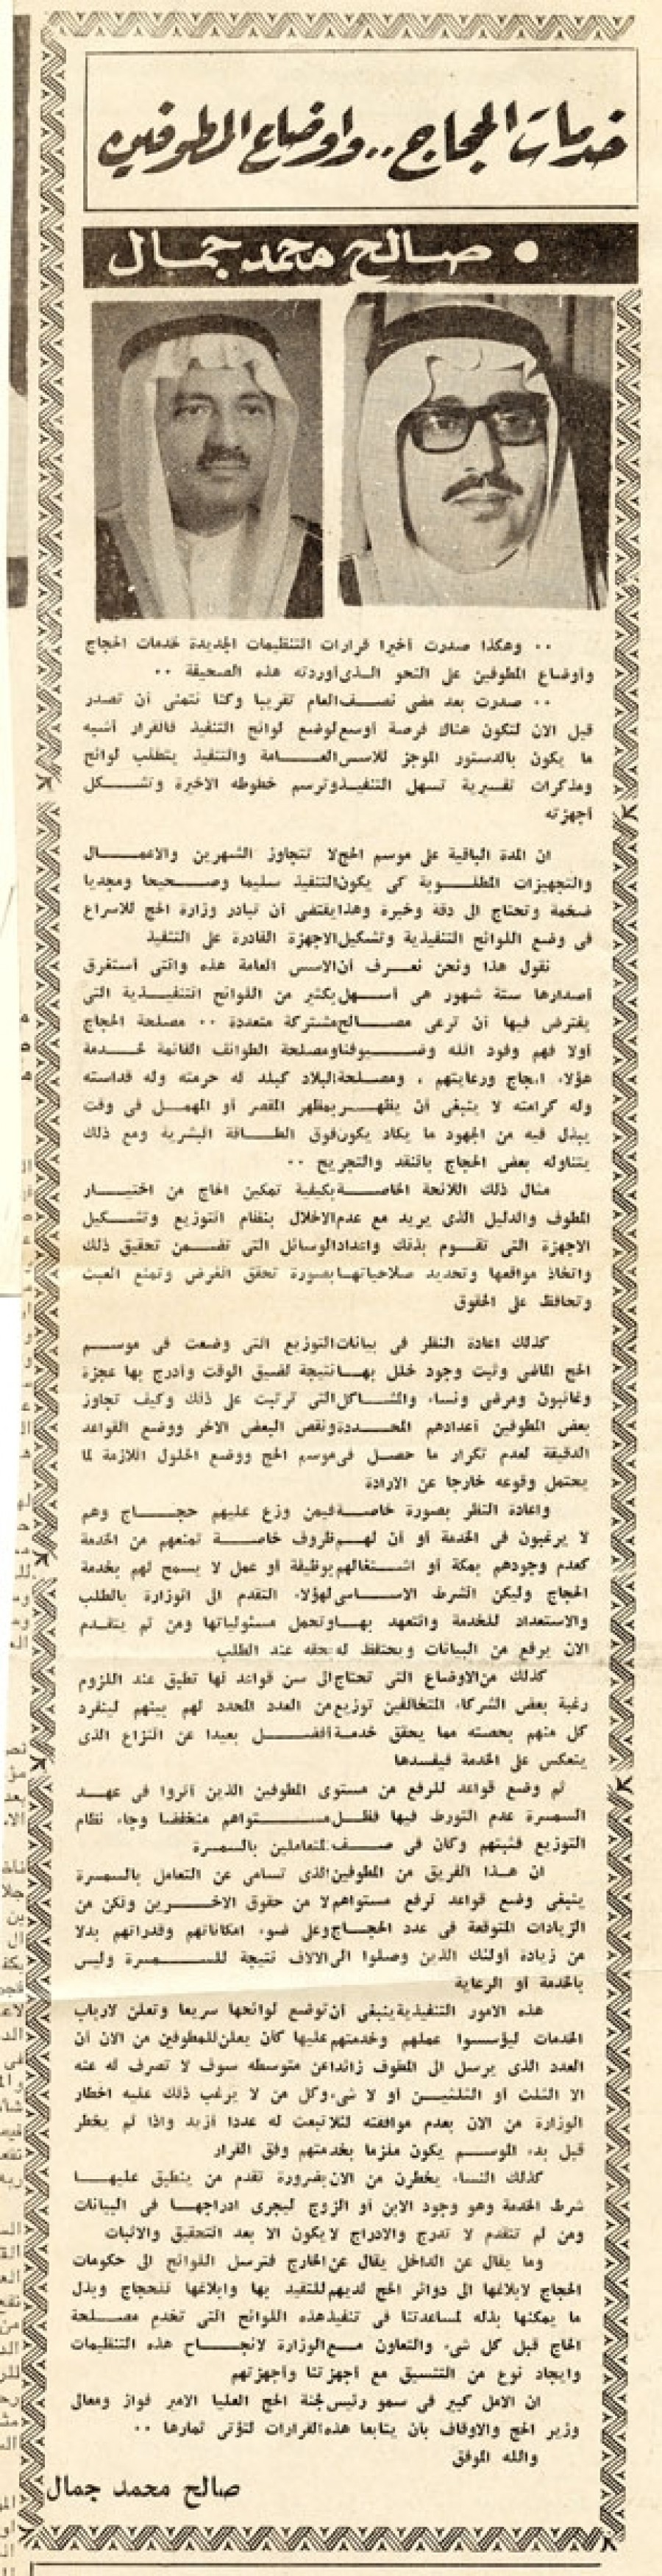 خدمات الحجاج .. واوضاع المطوفين
• صالح محمد جمال
.. وهكذا صدرت أخيرا قرارات التنظيمات الجديدة لخدمات الحجاج
وأوضاع المطوفين على النحو الذى أوردته هذه الصحيفة ..
.. صدرت بعد مضى نصف العام تقريبا وكنا نتمنى أن تصدر
قبل الان لتكون هناك فرصة أوسع لوضع لوائح التنفيذ فالقرار أشبه
ما يكون بالدستور الموجز للاسس العامة والتنفيذ يتطلب لوائح
ومذكرات تفسيرية تسهل التنفيذ وترسم خطوطه الاخيرة وتشكل
أجهزته
ان المدة الباقية على موسم الحج لا تتجاوز الشهرين والاعمال
والتجهيزات المطلوبة كى يكون التنفيذ سليما وصحيحا ومجديا
ضخمة وتحتاج الى دقة وخبرة وهذا يقتضى أن تبادر وزارة الحج للاسراع
فى وضع اللوائح التنفيذية وتشكيل الاجهزة القادرة على التنفيذ
نقول هذا ونحن نعرف أن الاسس العامة هذه والتى أستغرق
أصدارها ستة شهور هى أسهل بكثير من اللوائح التنفيذية التى
يفترض فيها أن ترعى مصالح مشتركة متعددة .. مصلحة الحجاج
أولا فهم وفود الله وضيوفنا ومصلحة الطوائف القائمة لخدمة
هؤلاء الحجاج ورعايتهم ، ومصلحة البلاد كبلد له حرمته وله قداسته
وله كرامته لا ينبغى أن يظهر بمظهر المقصر أو المهمل فى وقت
يبذل فيه من الجهود ما يكاد يكون فوق الطاقة البشرية ومع ذلك
يتناوله بعض الحجاج بالنقد والتجريح ..
مثال ذلك اللائحة الخاصة بكيفية تمكين الحاج من اختيار
المطوف والدليل الذى يريد مع عدم الاخلال بنظام التوزيع وتشكيل
الاجهزة التى تقوم بذلك واعداد الوسائل التى تضمن تحقيق ذلك
واتخاذ مواقعها وتحديد صلاحياتها بصورة تحقق الغرض وتمنع العبث
وتحافظ على الحقوق
كذلك اعادة النظر فى بيانات التوزيع التى وضعت فى موسم
الحج الماضى وثبت وجود خلل بها نتيجة لضيق الوقت وأدرج بها عجزة
وغائبون ومرضى ونساء والمشاكل التى ترتبت على ذلك وكيف تجاوز
بعض المطوفين أعدادهم المحددة ونقص البعض الاخر ووضع القواعد
الدقيقة لعدم تكرار ما حصل فى موسم الحج ووضع الحلول اللازمة لما
يحتمل وقوعه خارجا عن الارادة
واعادة النظر بصورة خاصة فيمن وزع عليهم حجاج وهم
لا يرغبون فى الخدمة أو أن لهم ظروف خاصة تمنعهم من الخدمة
كعدم وجودهم بمكة أو اشتغالهم بوظيفة أو عمل لا يسمح لهم بخدمة
الحجاج وليكن الشرط الاساسى لهؤلاء التقدم الى الوزارة بالطلب
والاستعداد للخدمة والتعهد بها وتحمل مسئولياتها ومن لم يتقدم
الان يرفع من البيانات ويحتفظ له بحقه عند الطلب
كذلك من الاوضاع التى تحتاج الى سن قواعد لها تطبق عند اللزوم
رغبة بعض الشركاء المتخالفين توزيع من العدد المحدد لهم بينهم لينفرد
كل منهم بحصته مما يحقق خدمة أفضل بعيدا عن النزاع الذى
ينعكس على الخدمة فيفسدها
ثم وضع قواعد للرفع من مستوى المطوفين الذين آثروا فى عهد
السمسرة عدم التورط فيها فظل مستواهم منخفضا وجاء نظام
التوزيع فثبتهم وكان فى صف المتعاملين بالسمسرة
ان هذا الفريق من المطوفين الذى تسامى عن التعامل بالسمسرة
ينبغى وضع قواعد ترفع مستواهم لا من حقوق الاخرين ولكن من
الزيادات المتوقعة فى عدد الحجاج وعلى ضوء امكاناتهم وقدراتهم بدلا
من زيادة أولئك الذين وصلوا الى الالاف نتيجة للسمسرة وليس
بالخدمة أو الرعاية
هذه الامور التنفيذية ينبغى أن توضع لوائحها سريعا وتعلن لارباب
الخدمات ليؤسسوا عملهم وخدمتهم عليها كأن يعلن للمطوفين من الان أن
العدد الذى يرسل الى المطوف زائدا عن متوسطه سوف لا تصرف له عنه
الا الثلث أو الثلثين أو لا شىء وكل من لا يرغب ذلك عليه اخطار
الوزارة من الان بعدم موافقته لئلا تبعث له عددا أزيد واذا لم يخطر
قبل بدء الموسم يكون ملزما بخدمتهم وفق القرار
كذلك النساء يخطرن من الان بضرورة تقدم من ينطبق عليها
شرط الخدمة وهو وجود الابن أو الزوج ليجرى ادراجها فى البيانات
ومن لم تتقدم لا تدرج والادراج لا يكون الا بعد التحقيق والاثبات
وما يقال عن الداخل يقال عن الخارج فترسل اللوائح الى حكومات
الحجاج لابلاغها الى دوائر الحج لديهم للتقيد بها وابلاغها للحجاج وبذل
ما يمكنها بذله لمساعدتنا فى تنفيذ هذه اللوائح التى تخدم مصلحة
الحاج قبل كل شىء والتعاون مع الوزارة لانجاح هذه التنظيمات
وايجاد نوع من التنسيق مع أجهزتنا وأجهزتهم
ان الامل كبير فى سمو رئيس لجنة الحج العليا الامير فواز ومعالى
وزير الحج والاوقاف بأن يتابعا هذه القرارات لتؤتى ثمارها ..
والله الموفق
صالح محمد جمال